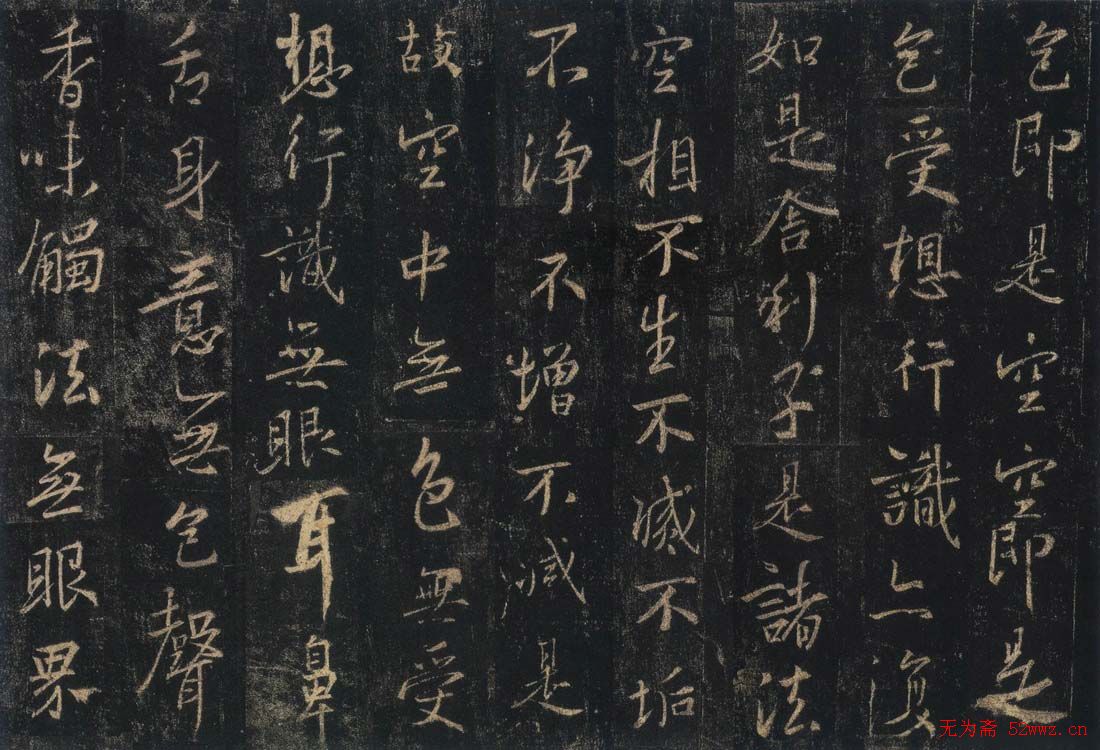 色即是空空即是
色受想行識亦復
如是舍利子是諸法
空相不生不滅不垢
不淨不增不減是
故空中無色無受
想行識無眼耳鼻
舌身意無色聲
香味觸法無眼界
无为斋 52wwz.cn